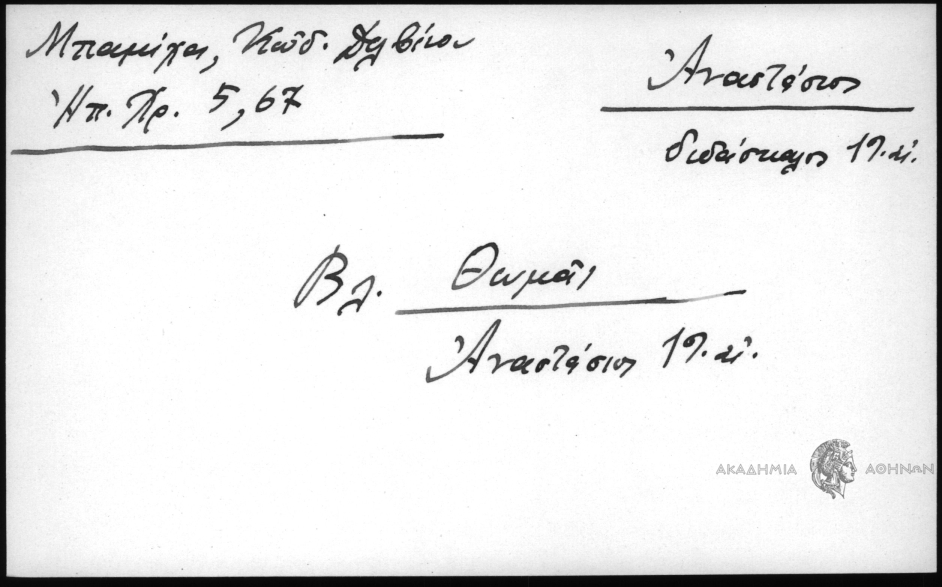 Μπαμίχαι, Κώδ. Δελβίνου
Ἠπ. Χρ. 5, 67
Ἀναστάσιος
διδάσκαλος 19. αἰ.
Βλ. Θωμᾶς
Ἀναστάσιος 19. αἰ.
ΑΚΑΔΗΜΙΑ ΑΘΗΝΩΝ